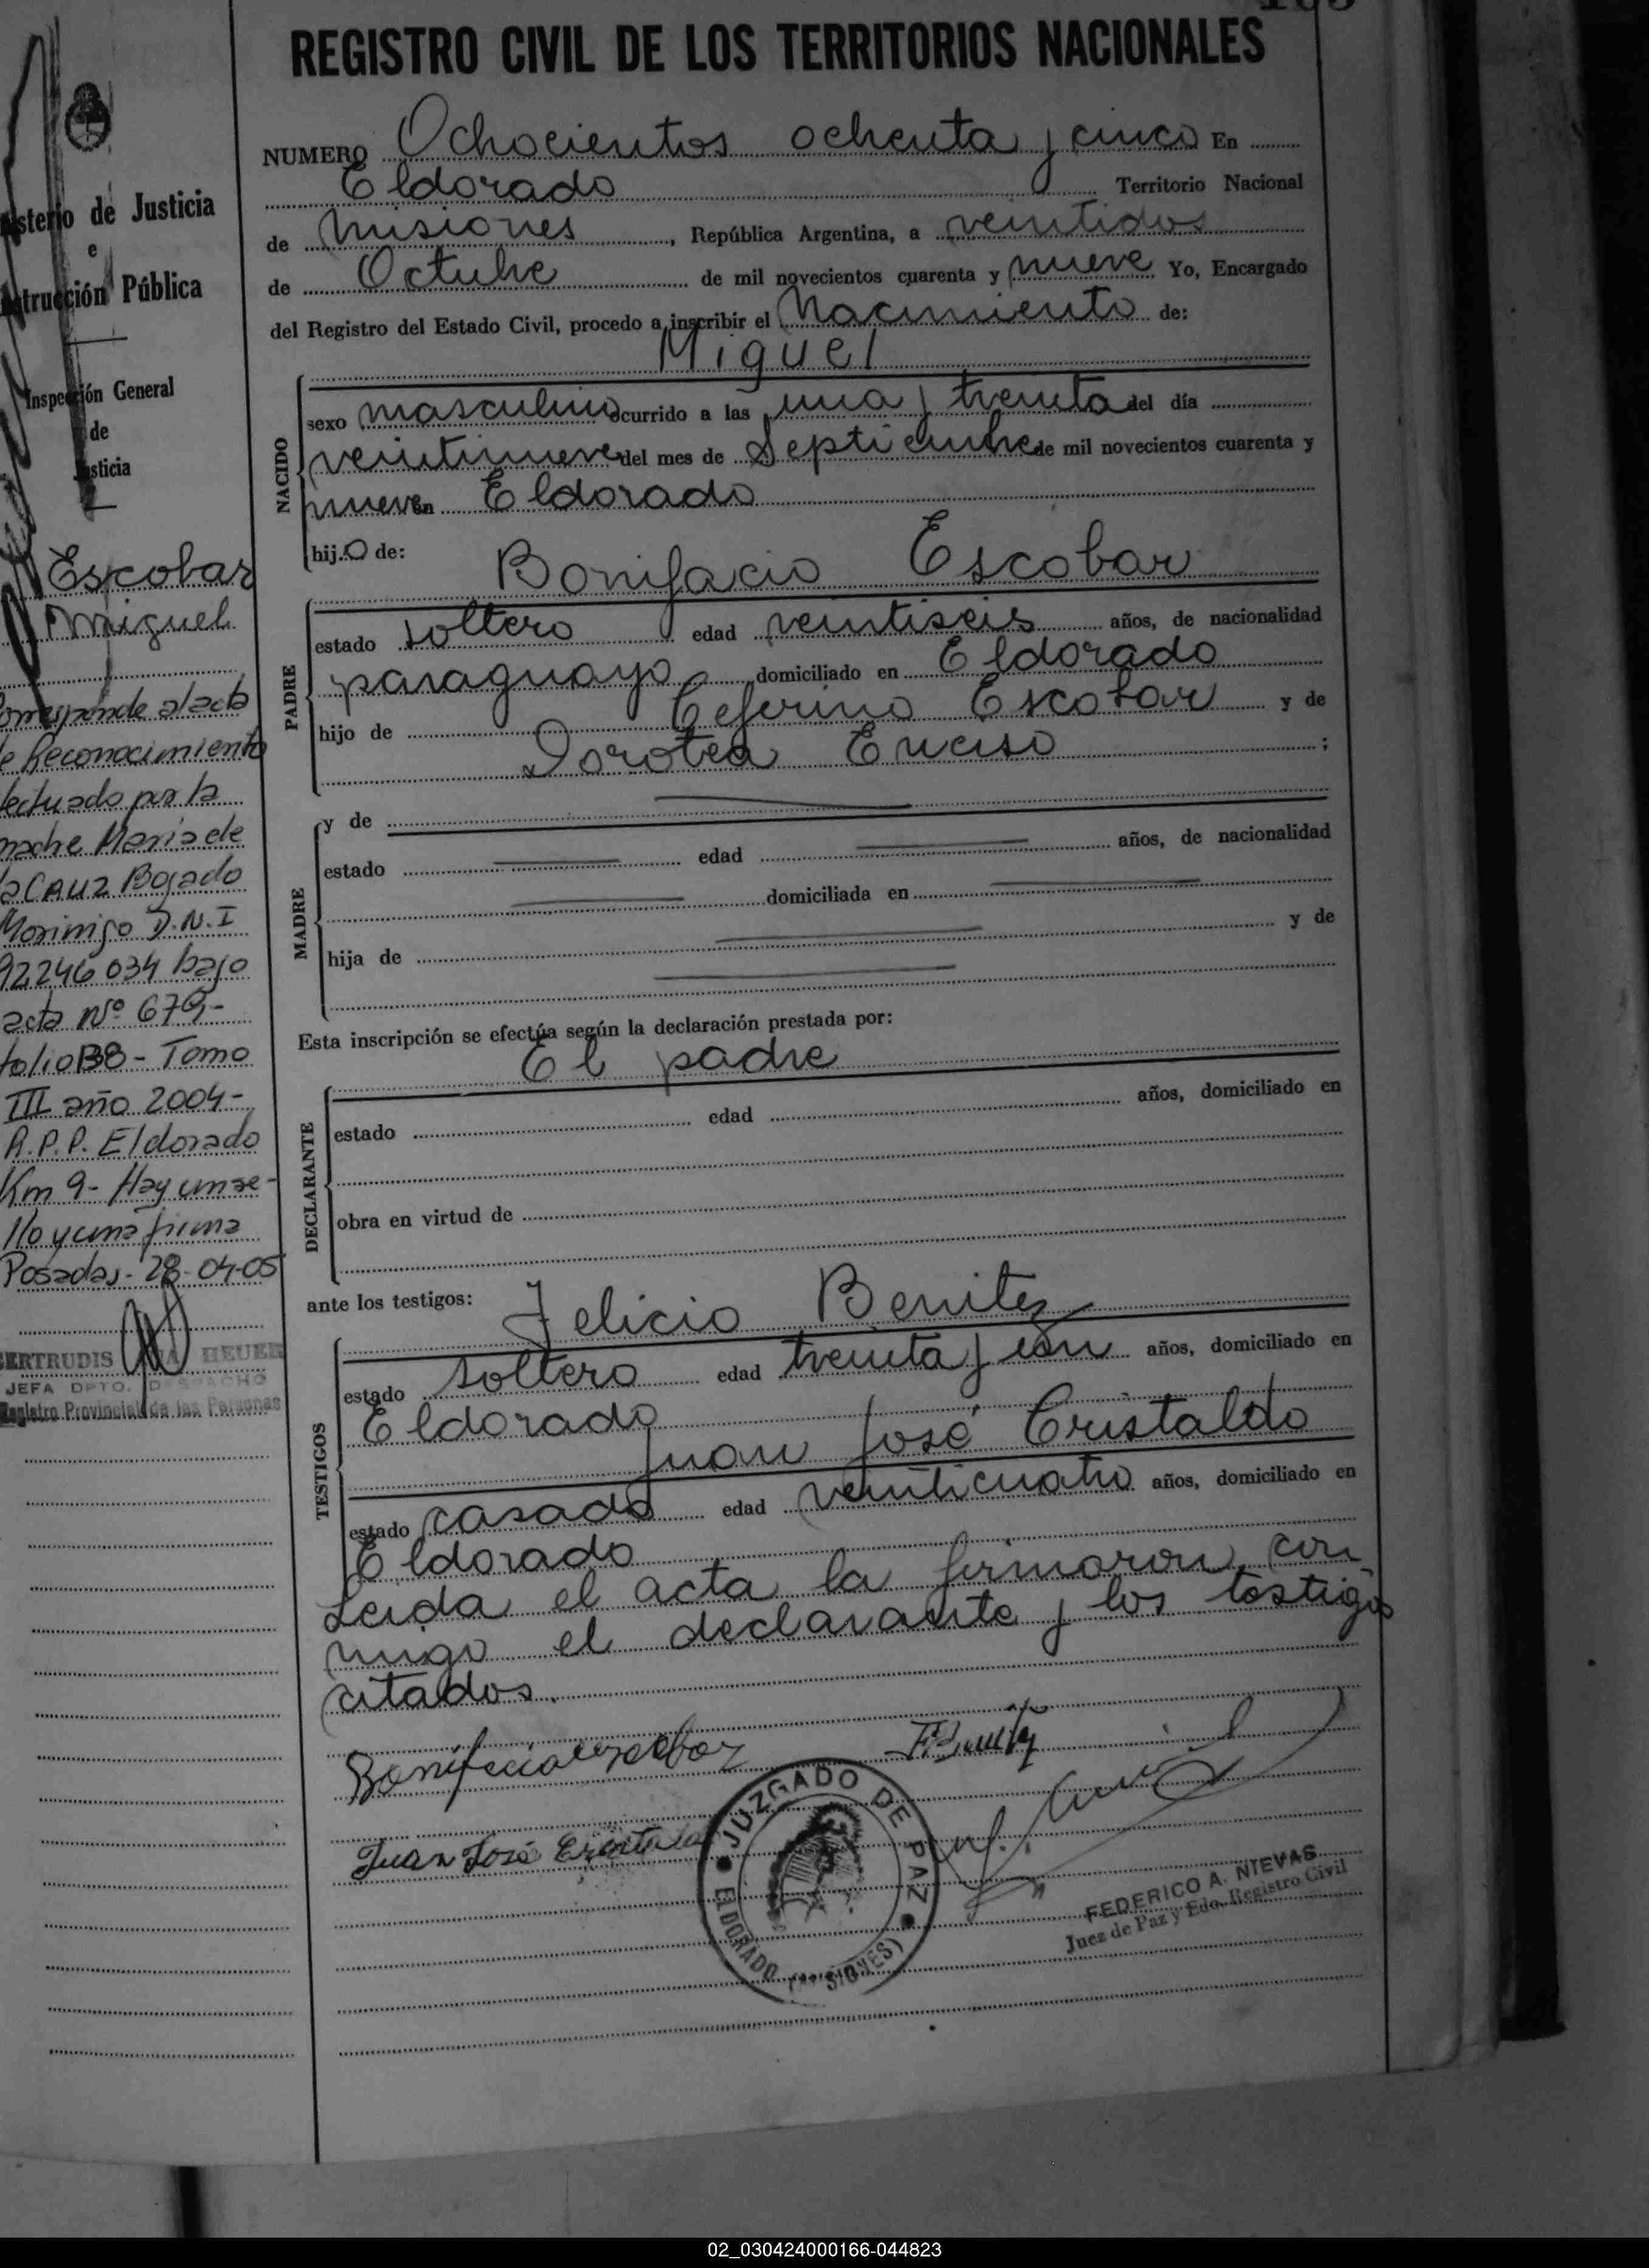 REGISTRO CIVIL DE LOS TERRITORIOS NACIONALES
NUMERO Ochocientos ochenta y cinco En
Eldorado Territorio Nacional
de Misiones, República Argentina, a veintidos
de Octubre de mil novecientos cuarenta y nueve Yo, Encargado
del Registro del Estado Civil, procedo a inscribir el Nacimiento de:
Miguel
NACIDO
sexo masculino ocurrido a las una y treinta del día
veintinueve del mes de Septiembre de mil novecientos cuarenta y
nueve en Eldorado
hijo de: Bonifacio Escobar
PADRE
estado soltero edad veintiseis años, de nacionalidad
paraguayo domiciliado en Eldorado
hijo de Ceferino Escobar y de
Dorotea Enciso ;
MADRE
y de
estado edad años, de nacionalidad
domiciliada en
hija de y de
Esta inscripción se efectúa según la declaración prestada por:
El padre
DECLARANTE
estado edad años, domiciliado en
obra en virtud de
ante los testigos: Felicio Benitez
TESTIGOS
estado soltero edad treinta y un años, domiciliado en
Eldorado
Juan José Cristaldo
estado casado edad veinticuatro años, domiciliado en
Eldorado
Leida el acta la firmaron con
migo el declarante y los testigos
citados.
Bonifacio Escobar
F. Benitez
Juan José Cristaldo
JUZGADO DE PAZ
ELDORADO (MISIONES)
FEDERICO A. NIEVAS
Juez de Paz y Edo. Registro Civil
isterio de Justicia
e
strucción Pública
Inspección General
de
Justicia
Escobar
Miguel
orresponde al acta
e Reconocimiento
fectuado por la
madre Maria de
la CRUZ Bogado
Morinigo D.N.I
92246034 bajo
acta Nº 679,-
folio 138 - Tomo
III año 2004-
R.P.P. Eldorado
Km 9- Hay un se-
llo y una firma
Posadas- 28-04-05
GERTRUDIS HEUER
JEFA DPTO. DESPACHO
Registro Provincial de las Personas
02_030424000166-044823